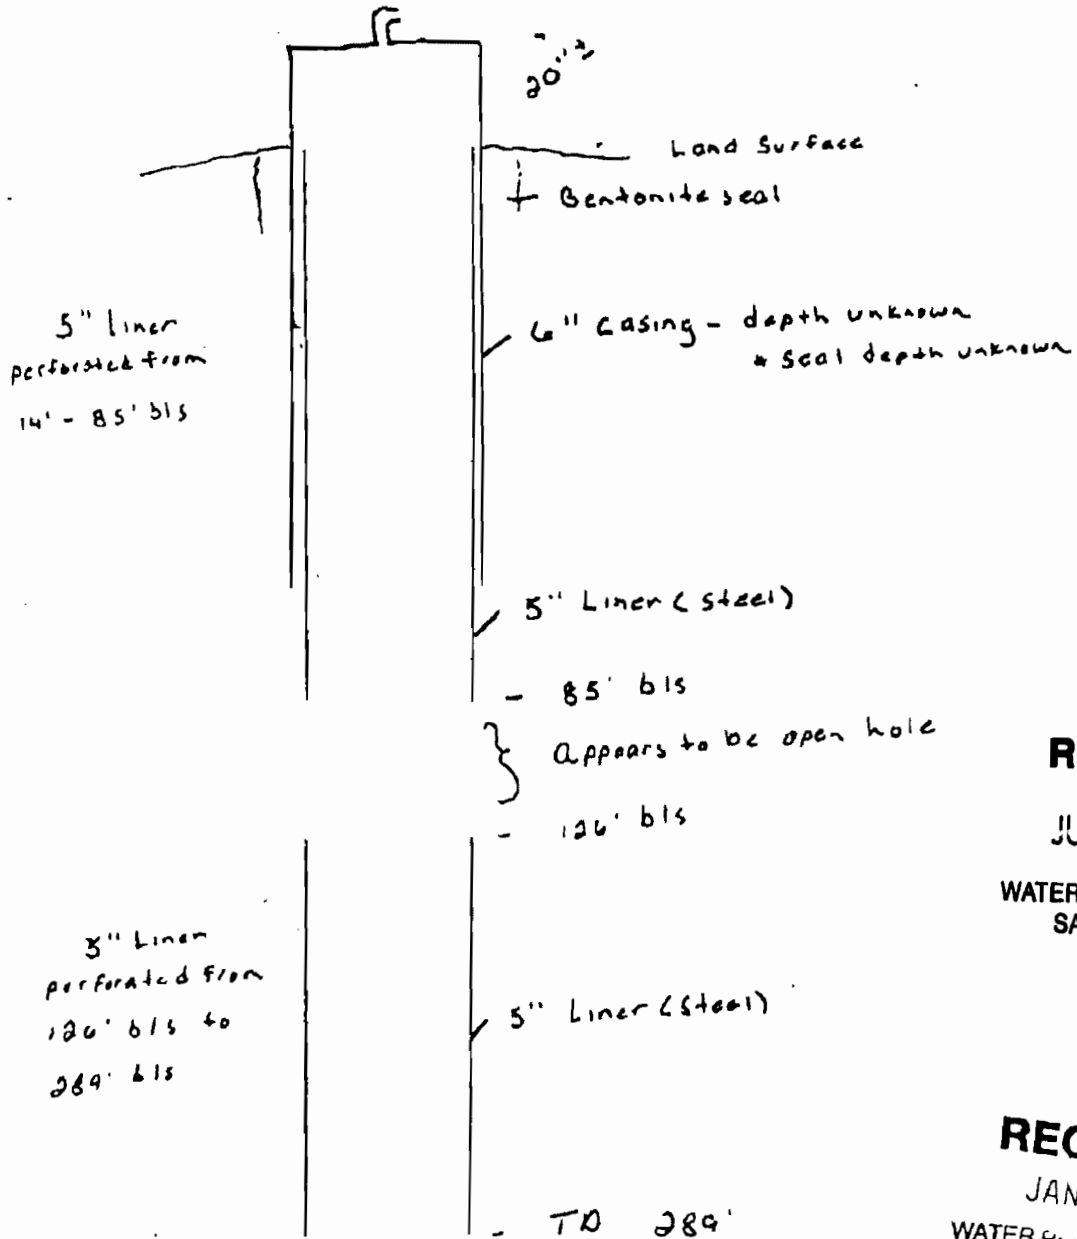 20"
Land Surface
Bentonite seal
5" liner
perforated from
14' - 85' bls
6" casing - depth unknown
* Seal depth unknown
5" Liner (steel)
- 85' bls
Appears to be open hole
- 126' bls
5" Liner
perforated from
126' bls to
289' bls
5" Liner (steel)
- TD 289'
R
JU
WATER
SA
REC
JAN
WATER